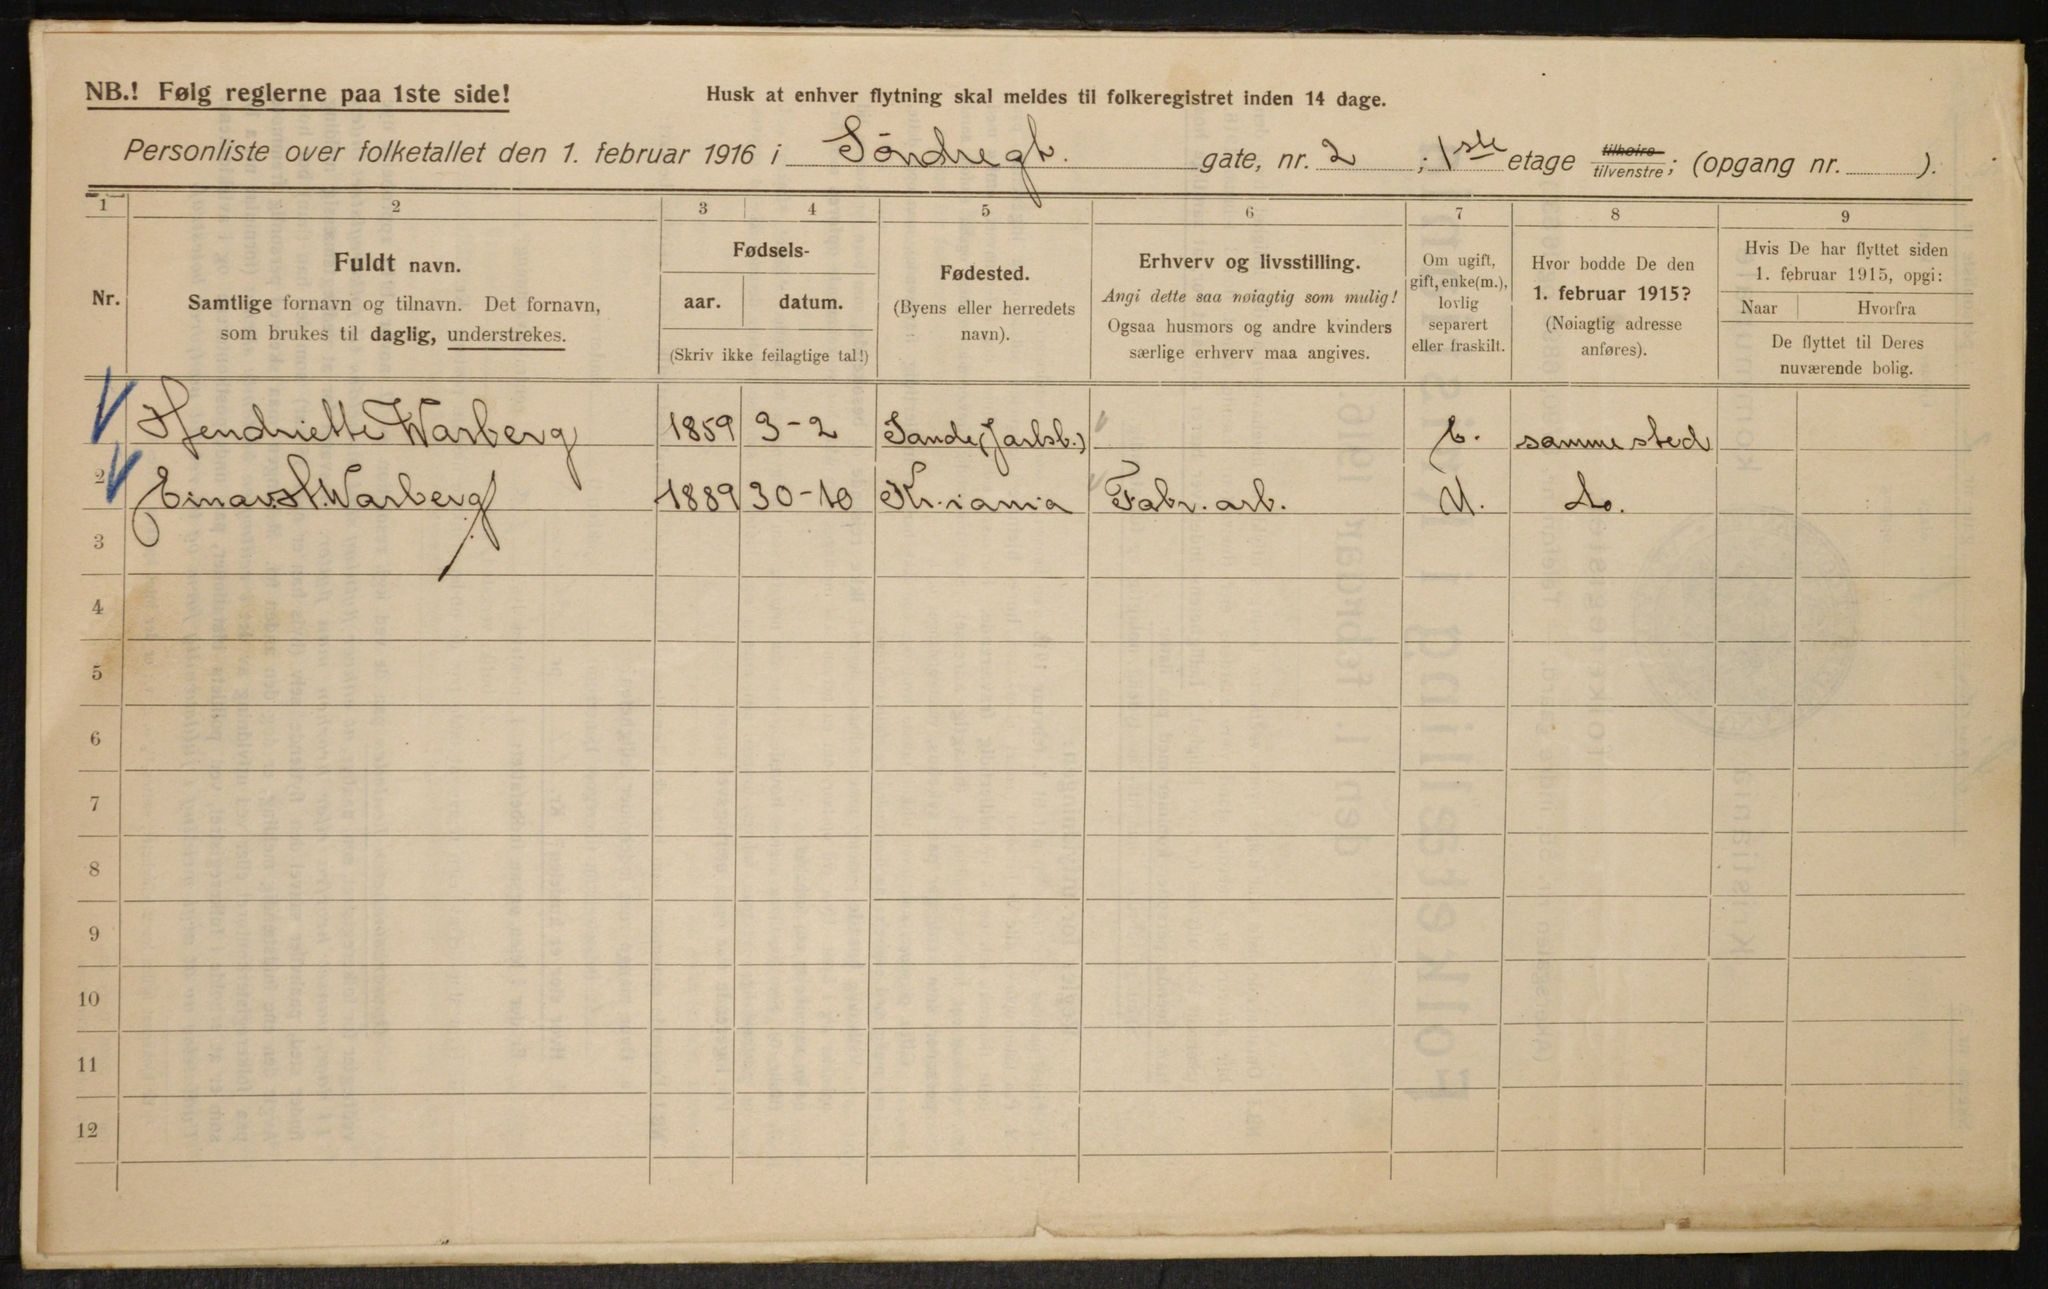 NB.! Følg reglerne paa 1ste side!
Husk at enhver flytning skal meldes til folkeregistret inden 14 dage.
Personliste over folketallet den 1. februar 1916 i Søndregt. gate, nr. 2 ; 1ste etage tilhøire/tilvenstre; (opgang nr. ).
1 2 3 4 5 6 7 8 9
Nr.
Fuldt navn.
Samtlige fornavn og tilnavn. Det fornavn,
som brukes til daglig, understrekes.
Fødsels-
aar. datum.
(Skriv ikke feilagtige tal!)
Fødested.
(Byens eller herredets
navn).
Erhverv og livsstilling.
Angi dette saa nøiagtig som mulig!
Ogsaa husmors og andre kvinders
særlige erhverv maa angives.
Om ugift,
gift, enke(m.),
lovlig
separert
eller fraskilt.
Hvor bodde De den
1. februar 1915?
(Nøiagtig adresse
anføres).
Hvis De har flyttet siden
1. februar 1915, opgi:
Naar Hvorfra
De flyttet til Deres
nuværende bolig.
Hendriette Warberg 1859 3-2 Sande (Jarlsb.) E. samme sted
2 Einar. Warberg 1889 30-10 Kr.iania Fabr. arb. U. do.
3
4
5
6
7
8
9
10
11
12